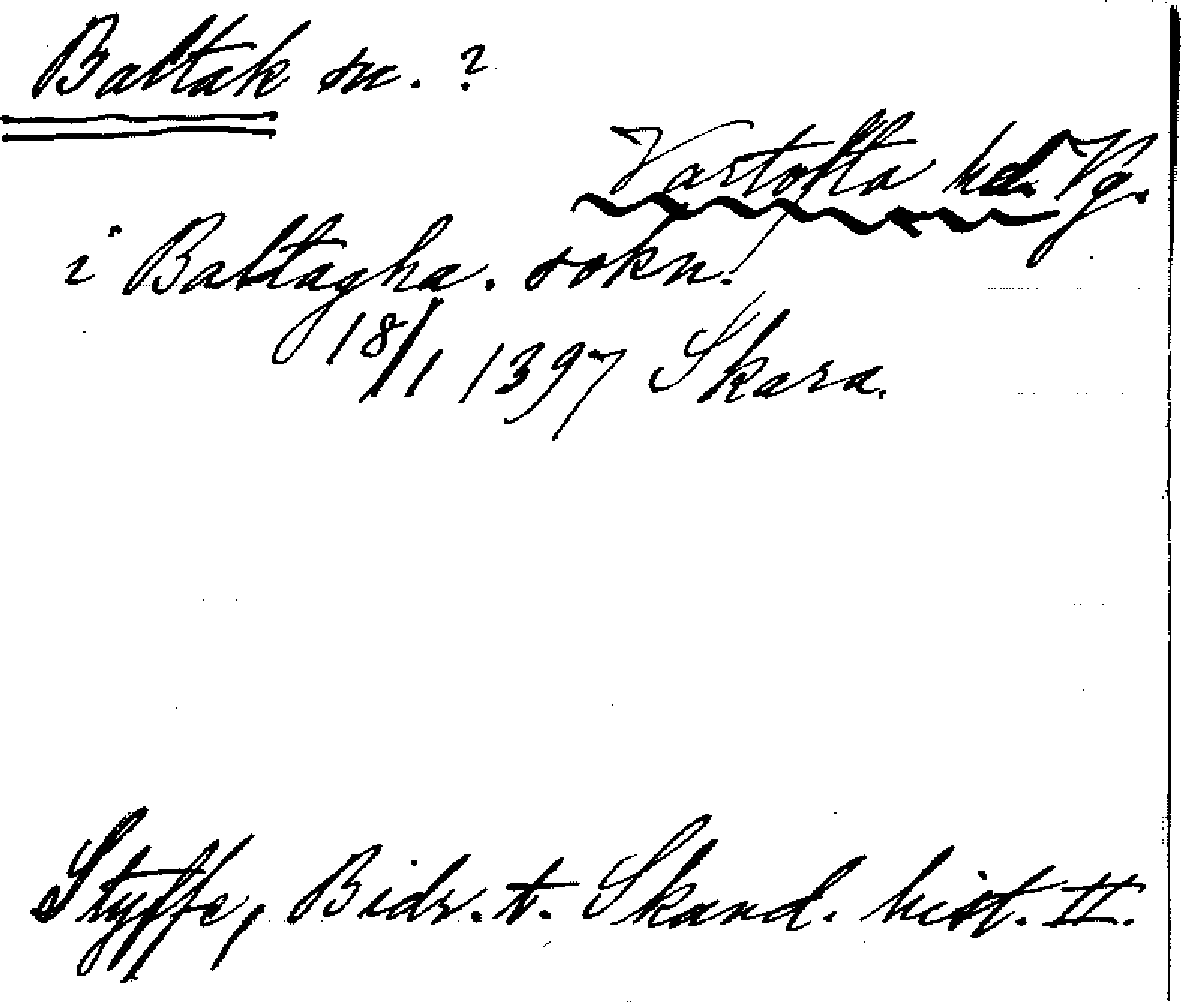 Baltak sn. ?
Vartofta hd. Vg.
i Baltagha. sokn.
18/1 1397 Skara.
Styffe, Bidr. t. Skand. hist. II.